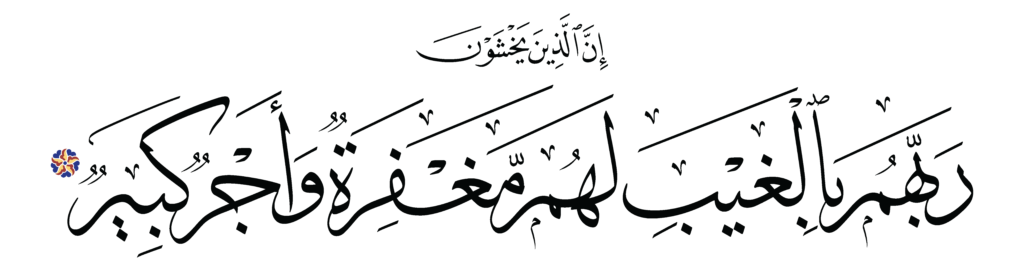 إِنَّ ٱلَّذِينَ يَخْشَوْنَ
رَبَّهُم بِٱلْغَيْبِ لَهُم مَّغْفِرَةٌ وَأَجْرٌ كَبِيرٌ